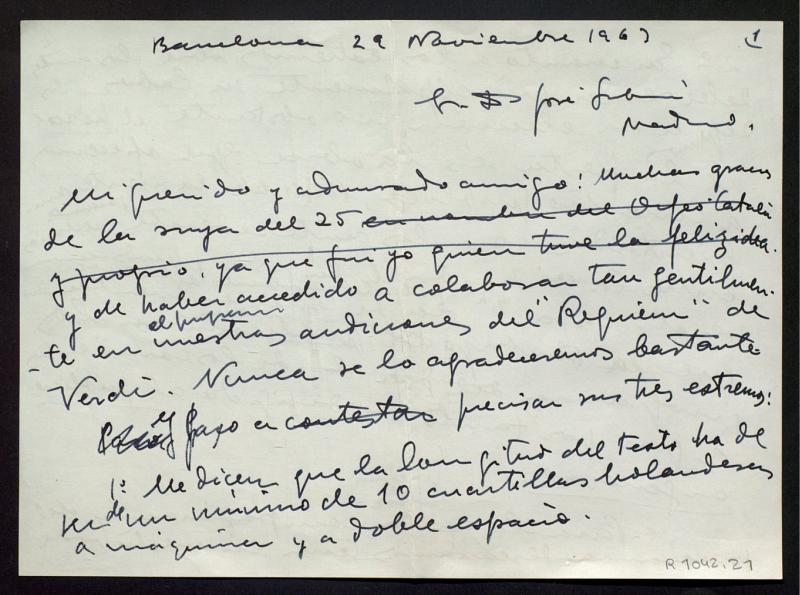 Barcelona 29 Noviembre 1963
1
Sr. D. José
Madrid.
Mi querido y admirado amigo: Muchas gracias
de la suya del 25 en nombre del Orfeó Català
y proprio, ya que fui yo quien tuve la feliz idea.
y de haber accedido a colaborar tan gentilmen-
el programa
te en nuestras audiciones del "Requiem" de
Verdi. Nunca se lo agradeceremos bastante
y paso a contestar precisar sus tres estremos:
1º Me dicen que la longitud del texto ha de
ser de un mínimo de 10 cuartillas holandesas
a máquina y a doble espacio.
R 1042.21